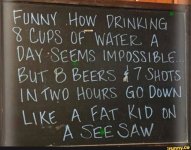 FUNNY HOW DRINKING
8 CUPS OF WATER A
DAY SEEMS IMPOSSIBLE...
BUT 8 BEERS & 7 SHOTS
IN TWO HOURS GO DOWN
LIKE A FAT KID ON
A SEE SAW
ifunny.co